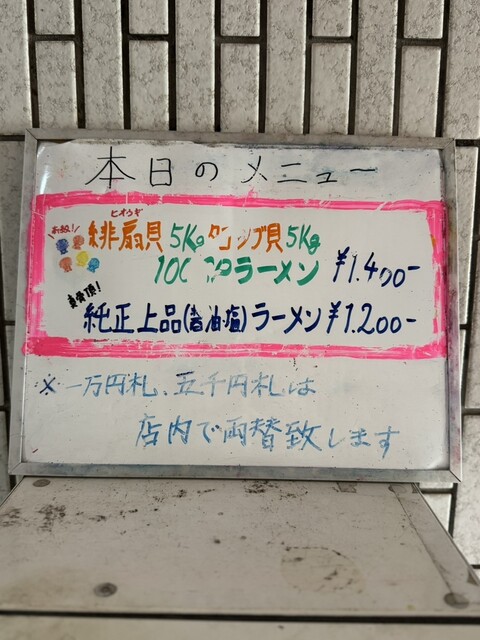 本日のメニュー
ヒオウギ
緋扇貝5Kg タンップ貝5Kg
ラーメン ¥1.400-
純正上品(醤油・塩)ラーメン¥1.200-
※一万円札、五千円札は
店内で両替致します